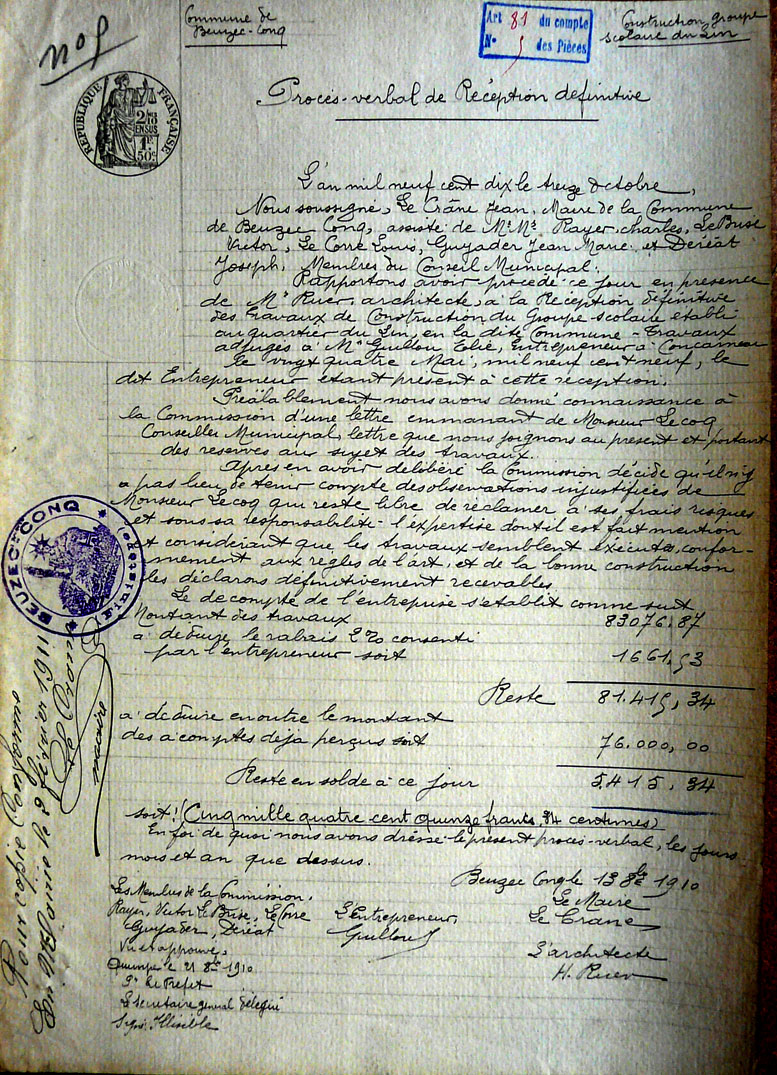 n° 5
Commune de
Beuzec-Conq
Art 81 du compte
N° 5 des Pièces
Construction groupe
scolaire du Lin
REPUBLIQUE FRANÇAISE
2/10
EN SUS
1F
50c
Procès-verbal de Réception définitive
L'an mil neuf cent dix le treize Octobre,
Nous soussigné, Le Crâne Jean, Maire de la Commune
de Beuzec Conq, assisté de Mr Mrs Rayer, Charles, Le Buse
Victor, Le Corre Louis, Guyader Jean Marie et Deréat
Joseph, Membres du Conseil Municipal.
Rapportons avoir procédé ce jour en présence
de Mr Ruer, architecte, à la Réception définitive
des travaux de Construction du Groupe scolaire etabli
au quartier du Lin, en la dite Commune - Travaux
adjugés à Mr Guillou Elie, Entrepreneur à Concarneau
le vingt quatre Mai, mil neuf cent neuf, le
dit Entrepreneur etant présent à cette réception.
Préalablement nous avons donné connaissance à
la Commission d'une lettre emmanant de Monsieur Lecoq
Conseiller Municipal, lettre que nous joignons au présent et portant
des reserves au sujet des travaux.
Après en avoir délibéré la Commission décide qu'il n'y
a pas lieu de tenir compte des observations injustifiées de
Monsieur Lecoq qui reste libre de réclamer à ses frais risques
et sous sa responsabilité l'expertise dont il est fait mention
et considérant que les travaux semblent exécutés, confor-
mement aux règles de l'art, et de la bonne construction
les déclarons définitivement recevables.
Le décompte de l'entreprise s'établit comme suit
Montant des travaux 83076.87
à déduire le rabais 2% consenti
par l'entrepreneur soit 1661,53
Reste 81.415,34
à déduire en outre le montant
des acomptes déja perçus soit 76.000,00
Reste en solde à ce jour 5.415,34
soit: (Cinq mille quatre cent quinze francs 34 centimes)
En foi de quoi nous avons dressé le présent procès-verbal, les jours
mois et an que dessus.
Beuzec Conq le 13 8bre 1910
Les Membres de la Commission,
Rayer, Victor Le Buse, Le Corre
Guyader, Deréat
L'Entrepreneur
Guillou
Le Maire
Le Crane
L'architecte
H. Ruer
Vu et approuvé,
Quimper le 21 8bre 1910
Pr Le Prefet
Le secretaire general délégué
Signé: Illisible
BEUZEC-CONQ
Pour copie Conforme
En Mairie le 9 février 1911
Le maire